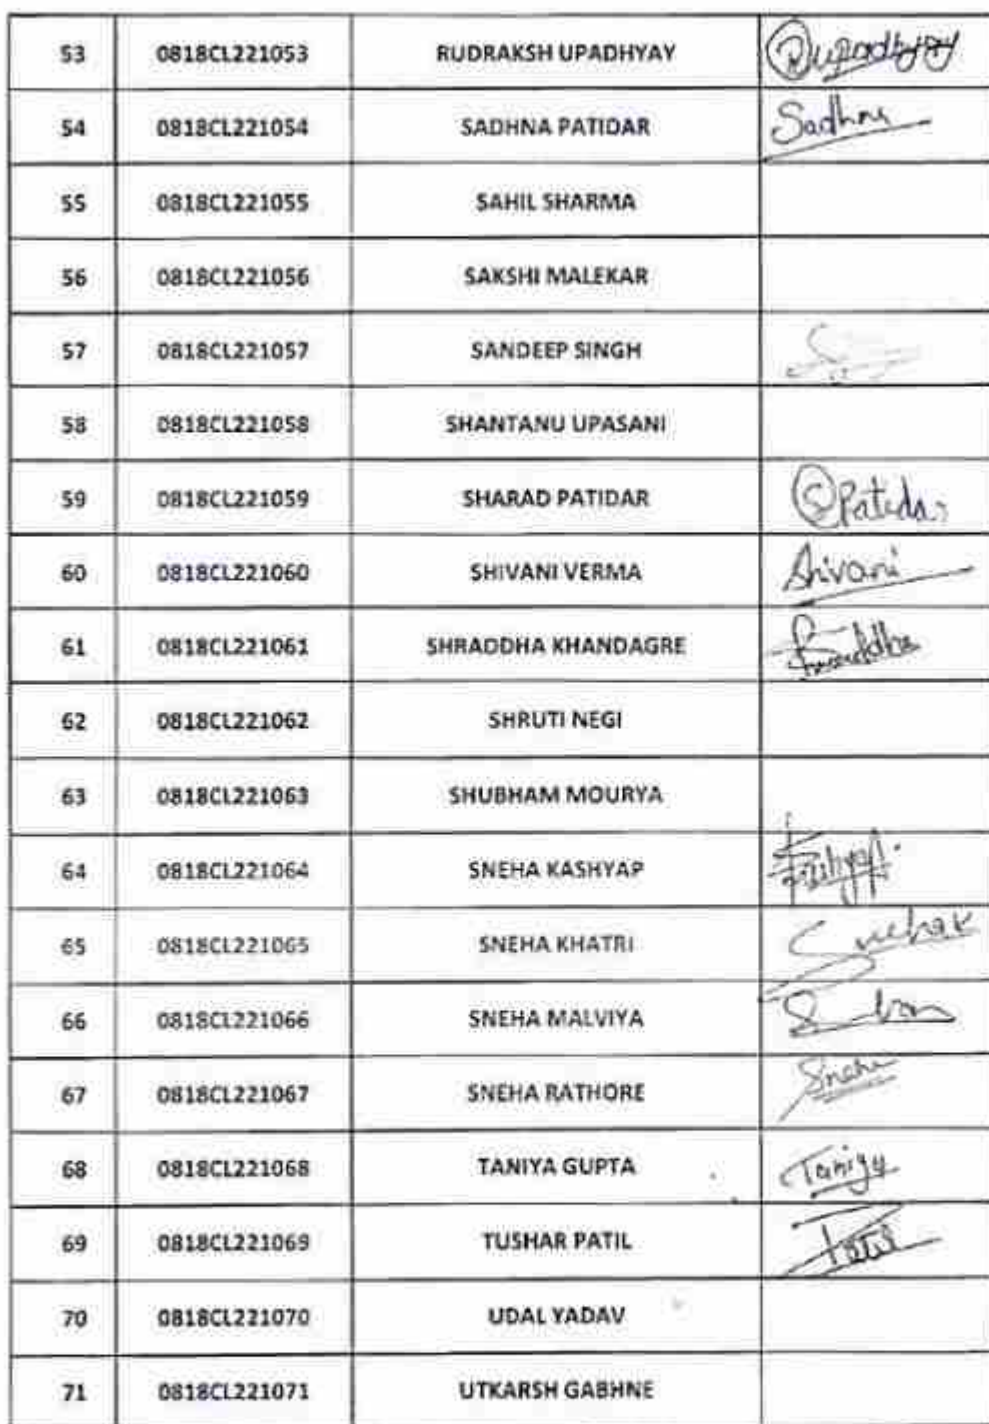 53 0818CL221053 RUDRAKSH UPADHYAY Rupadhyay
54 0818CL221054 SADHNA PATIDAR Sadhna
55 0818CL221055 SAHIL SHARMA
56 0818CL221056 SAKSHI MALEKAR
57 0818CL221057 SANDEEP SINGH
58 0818CL221058 SHANTANU UPASANI
59 0818CL221059 SHARAD PATIDAR SPatidar
60 0818CL221060 SHIVANI VERMA Shivani
61 0818CL221061 SHRADDHA KHANDAGRE
62 0818CL221062 SHRUTI NEGI
63 0818CL221063 SHUBHAM MOURYA
64 0818CL221064 SNEHA KASHYAP
65 0818CL221065 SNEHA KHATRI Snehak
66 0818CL221066 SNEHA MALVIYA
67 0818CL221067 SNEHA RATHORE Sneha
68 0818CL221068 TANIYA GUPTA Taniya
69 0818CL221069 TUSHAR PATIL Patil
70 0818CL221070 UDAL YADAV
71 0818CL221071 UTKARSH GABHNE